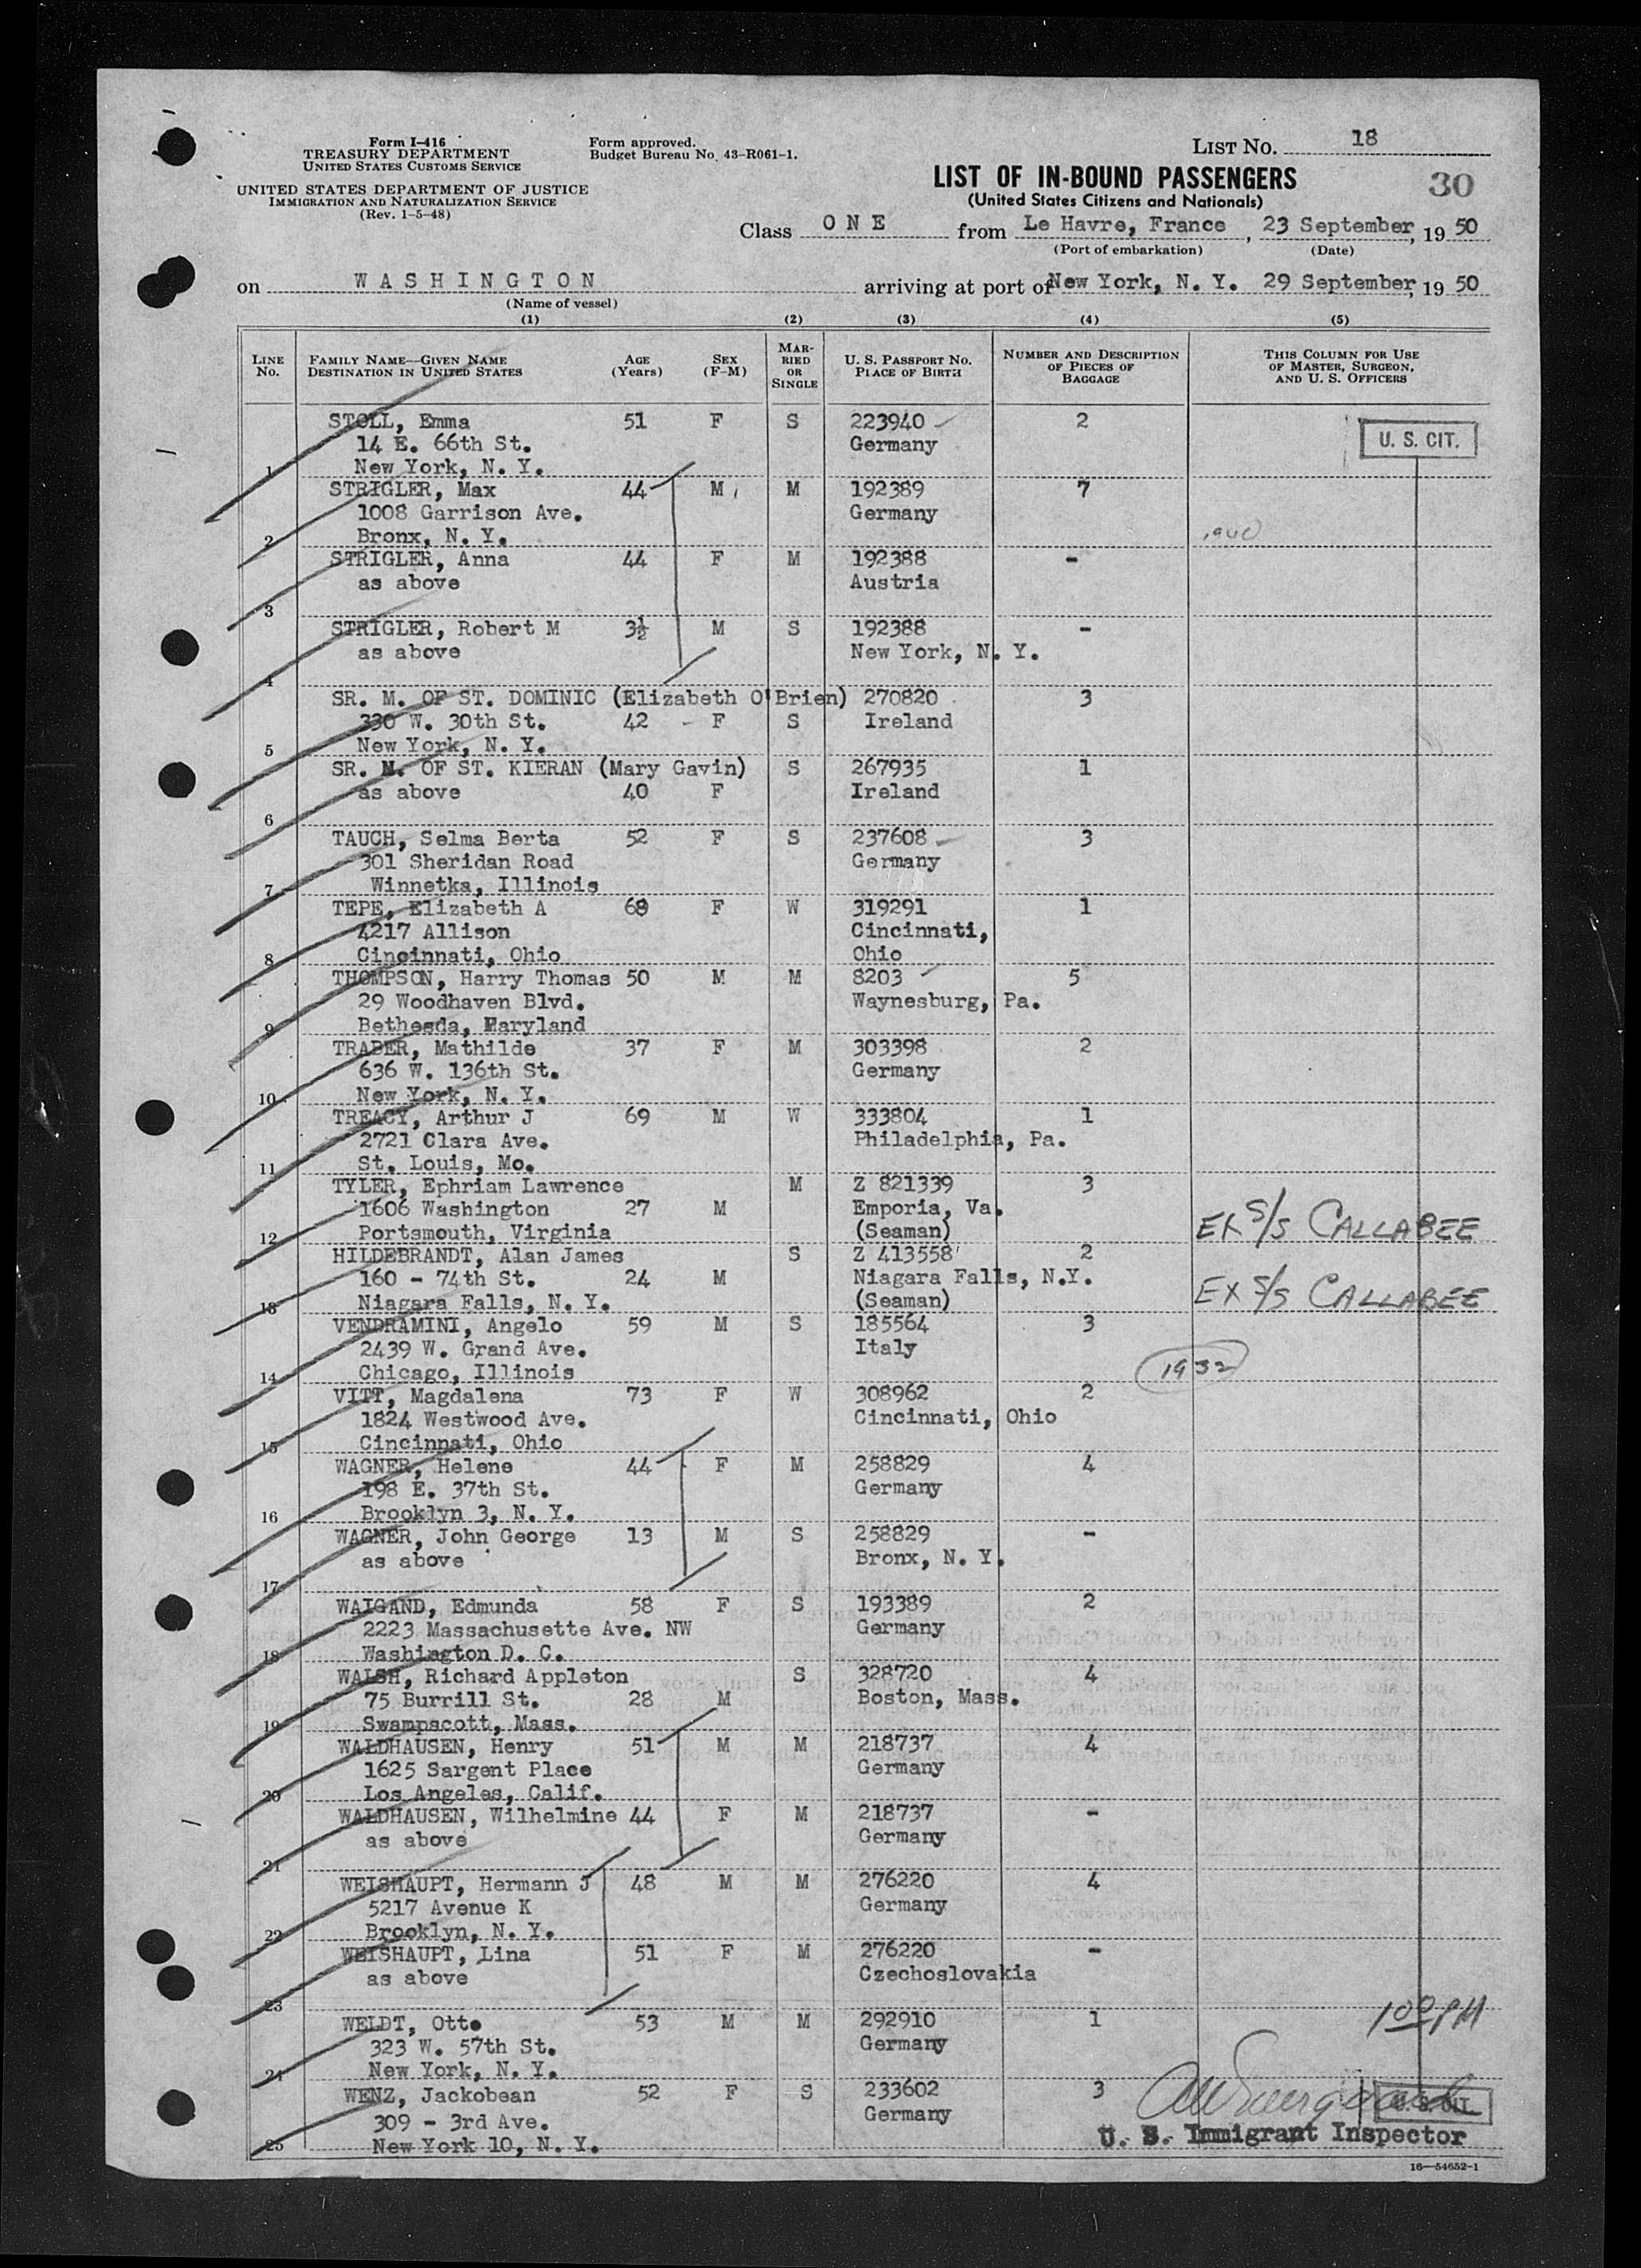 Form I-416
TREASURY DEPARTMENT
UNITED STATES CUSTOMS SERVICE
UNITED STATES DEPARTMENT OF JUSTICE
IMMIGRATION AND NATURALIZATION SERVICE
(Rev. 1-5-48)
Form approved.
Budget Bureau No. 43-R061-1.
LIST No. 18
LIST OF IN-BOUND PASSENGERS
30
(United States Citizens and Nationals)
Class O N E from Le Havre, France, 23 September, 19 50
(Port of embarkation) (Date)
on W A S H I N G T O N arriving at port of New York, N. Y. 29 September, 19 50
(Name of vessel)
(1) (2) (3) (4) (5)
LINE No.
FAMILY NAME—GIVEN NAME
DESTINATION IN UNITED STATES
AGE (Years)
SEX (F-M)
MARRIED OR SINGLE
U. S. PASSPORT NO.
PLACE OF BIRTH
NUMBER AND DESCRIPTION OF PIECES OF BAGGAGE
THIS COLUMN FOR USE OF MASTER, SURGEON, AND U. S. OFFICERS
STOLL, Emma 51 F S 223940 2
14 E. 66th St. Germany U. S. CIT.
1 New York, N. Y.
STRIGLER, Max 44 M M 192389 7
1008 Garrison Ave. Germany
2 Bronx, N. Y.
STRIGLER, Anna 44 F M 192388 -
as above Austria
3
STRIGLER, Robert M 3½ M S 192388 -
as above New York, N. Y.
4
SR. M. OF ST. DOMINIC (Elizabeth O'Brien) 270820 3
330 W. 30th St. 42 - F S Ireland
5 New York, N. Y.
SR. M. OF ST. KIERAN (Mary Gavin) S 267935 1
as above 40 F Ireland
6
TAUCH, Selma Berta 52 F S 237608 3
301 Sheridan Road Germany
7 Winnetka, Illinois
TEPE, Elizabeth A 68 F W 319291 1
4217 Allison Cincinnati,
8 Cincinnati, Ohio Ohio
THOMPSON, Harry Thomas 50 M M 8203 5
29 Woodhaven Blvd. Waynesburg, Pa.
9 Bethesda, Maryland
TRABER, Mathilde 37 F M 303398 2
636 W. 136th St. Germany
10 New York, N. Y.
TREACY, Arthur J 69 M W 333804 1
2721 Clara Ave. Philadelphia, Pa.
11 St. Louis, Mo.
TYLER, Ephriam Lawrence M Z 821339 3
1606 Washington 27 M Emporia, Va.
12 Portsmouth, Virginia (Seaman) EX S/S CALLABEE
HILDEBRANDT, Alan James S Z 413558 2
160 - 74th St. 24 M Niagara Falls, N.Y.
13 Niagara Falls, N. Y. (Seaman) EX S/S CALLABEE
VENDRAMINI, Angelo 59 M S 185564 3
2439 W. Grand Ave. Italy 1932
14 Chicago, Illinois
VITT, Magdalena 73 F W 308962 2
1824 Westwood Ave. Cincinnati, Ohio
15 Cincinnati, Ohio
WAGNER, Helene 44 F M 258829 4
198 E. 37th St. Germany
16 Brooklyn 3, N. Y.
WAGNER, John George 13 M S 258829 -
as above Bronx, N. Y.
17
WAIGAND, Edmunda 58 F S 193389 2
2223 Massachusette Ave. NW Germany
18 Washington D. C.
WALSH, Richard Appleton S 328720 4
75 Burrill St. 28 M Boston, Mass.
19 Swampscott, Mass.
WALDHAUSEN, Henry 51 M M 218737 4
1625 Sargent Place Germany
20 Los Angeles, Calif.
WALDHAUSEN, Wilhelmine 44 F M 218737 -
as above Germany
21
WEISHAUPT, Hermann J 48 M M 276220 4
5217 Avenue K Germany
22 Brooklyn, N. Y.
WEISHAUPT, Lina 51 F M 276220 -
as above Czechoslovakia
23
WELDT, Otto 53 M M 292910 1 1 00 PM
323 W. 57th St. Germany
24 New York, N. Y.
WENZ, Jackobean 52 F S 233602 3
309 - 3rd Ave. Germany U. S. CIT.
25 New York 10, N. Y. U. S. Immigrant Inspector
16—54652-1